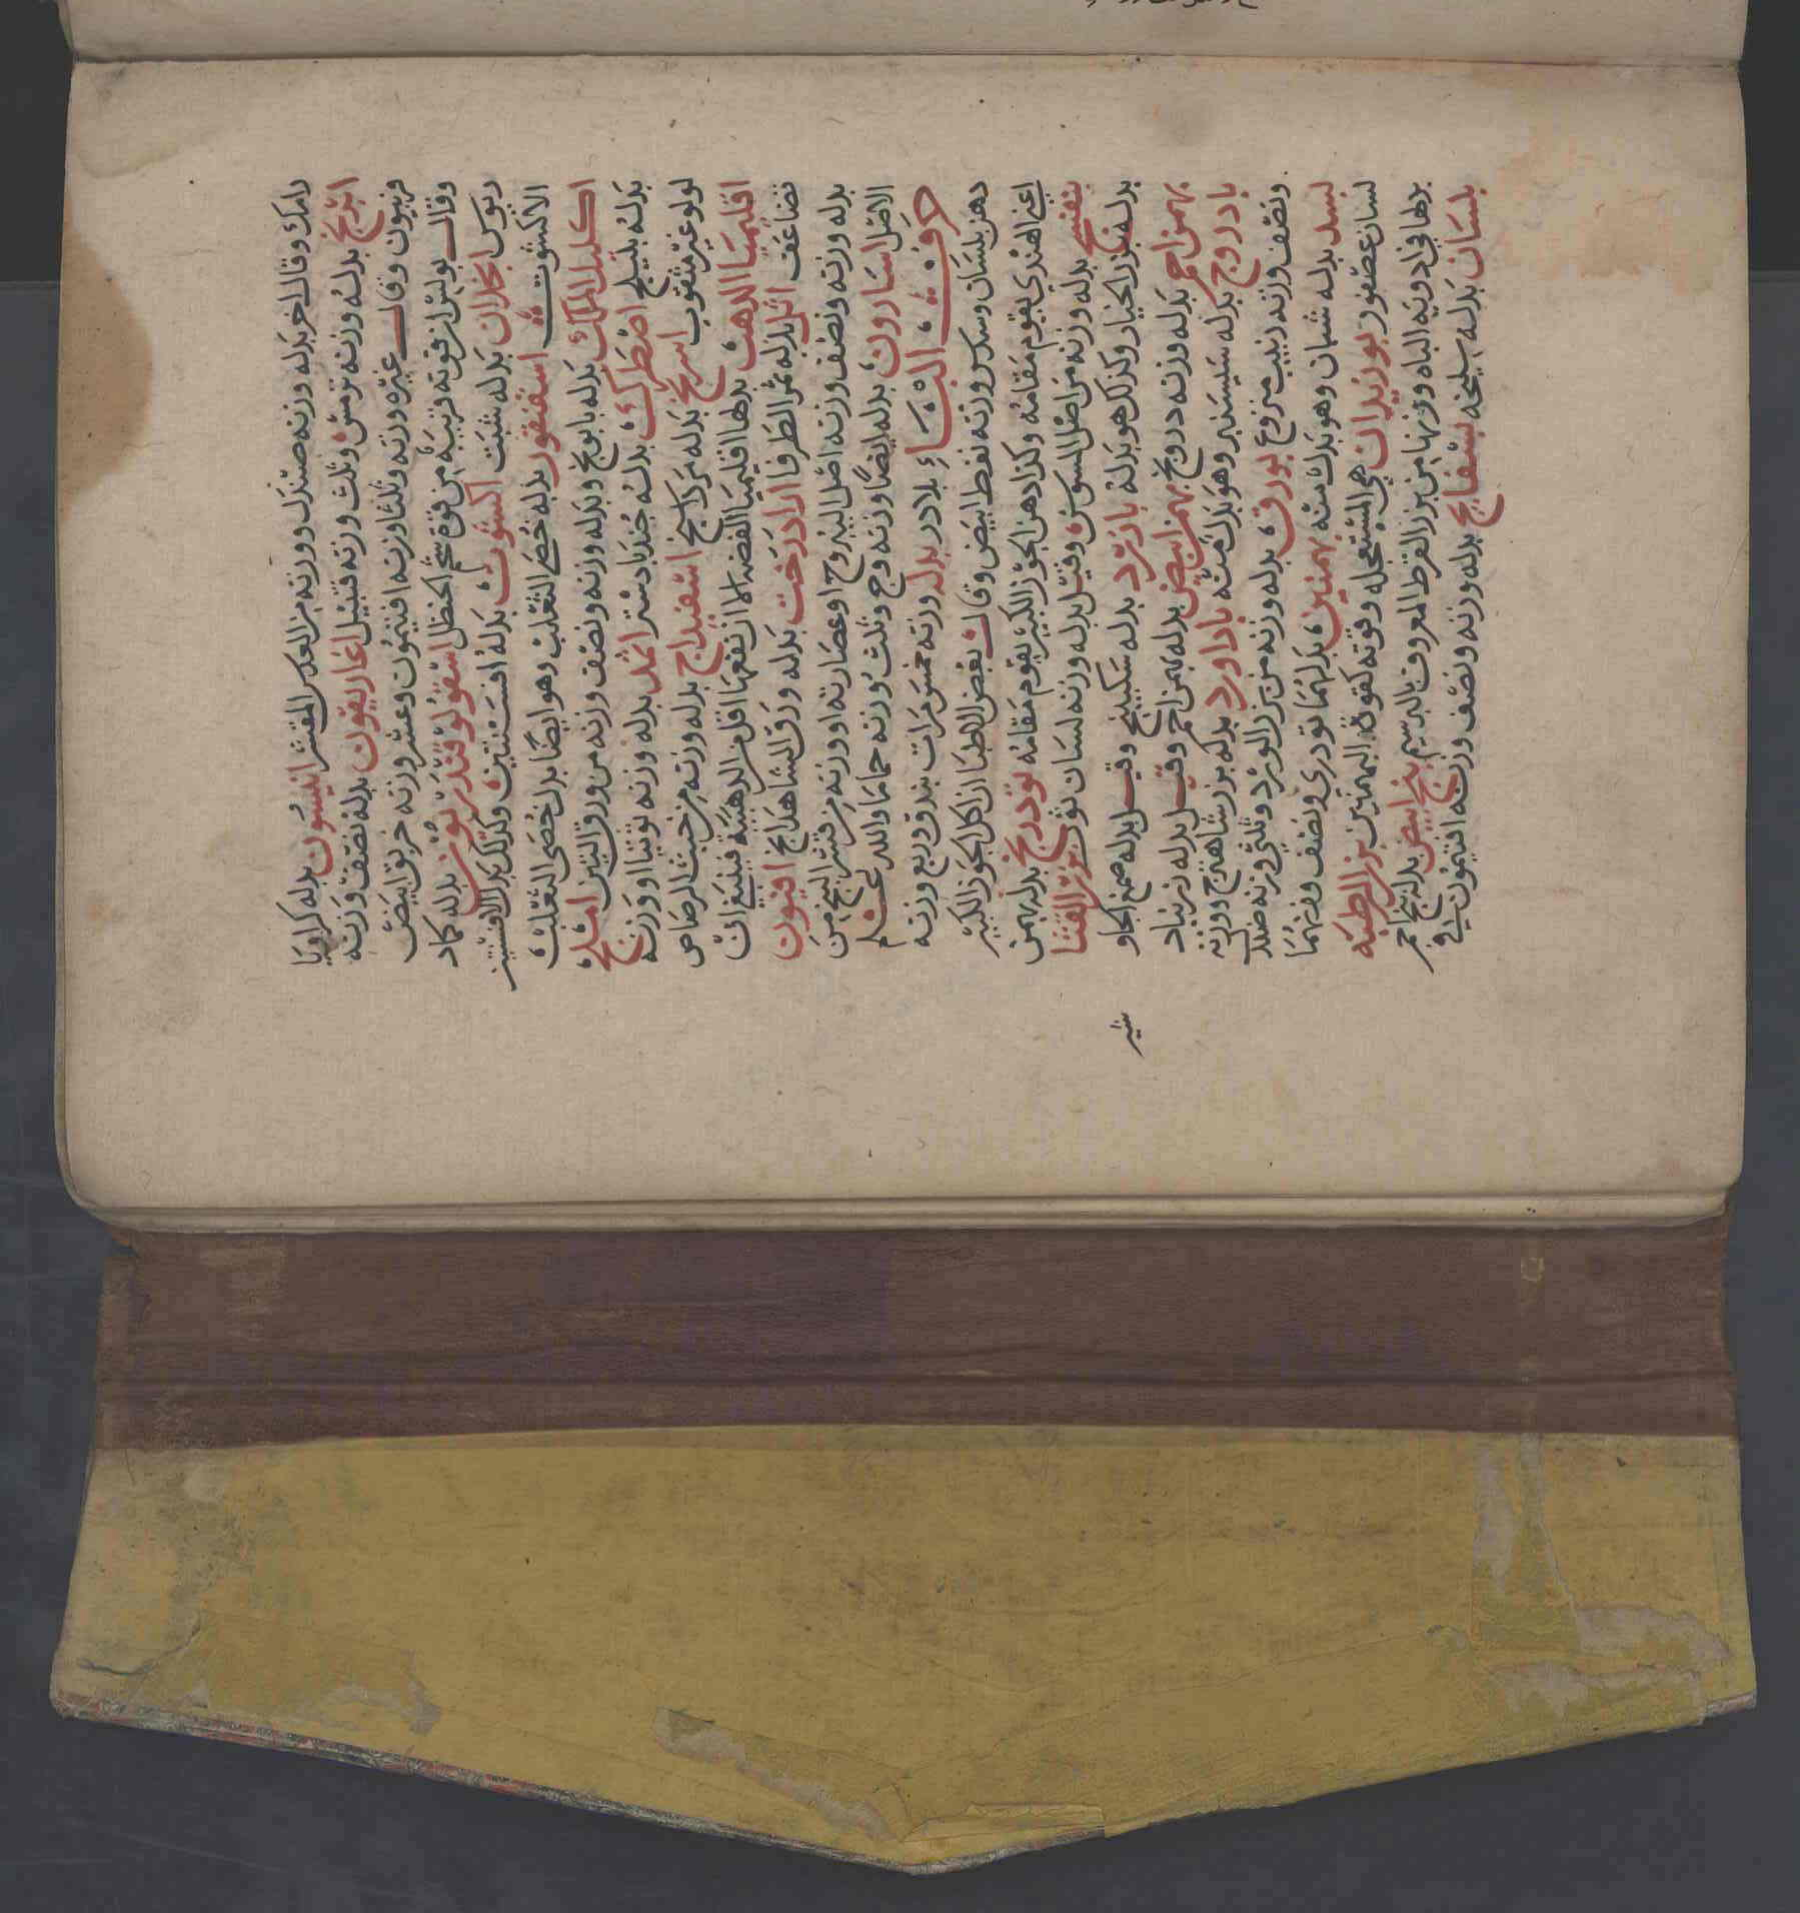 رامك وقال اخر بدله وزنه صندل ووزنه من العدس المقشر انيسون بدله كراويا
اترج بدله وزنه ترمس وثلث وزنه قنبيل اغاريقون بدله نصف وزنه
فربيون وقال غيره وزنه وثلثا وزنه افتيمون وعشر وزنه خربق ابيض
وقال بولس ان قوته قريبة من قوة شحم الحنظل اسقولوقندريون بدله كماد
ريوس انجدان بدله شبت اكشوث بدله افسنتين وكذلك بدل الافسنتين
الاكشوث اسقنقور بدله خصى الثعلب وهو ايضا بدل خصى الثعلب
اكليل الملك بدله بابونج وبدله وزنه ونصف وزنه من ورق التين املج
بدله بليلج اصطرك بدله جندبادستر اثمد بدله وزنه توتيا او وزنه
لولو غير مثقوب اسرنج بدله مرداسنج اسفيداج بدله وزنه من خبث الرصاص
اقليميا الذهب بدلها اقليميا الفضه الا ان نفعها اقل من الذهبية فينبغي ان
تضاعف اثل بدله ثمر الطرفا ازادرخت بدله ورق الشاهدانج افيون
بدله وزنه ونصف وزنه اصل اليبروح او عصارته او وزنه من قشر البنج من
الاصل اسارون بدله ايضا وزنه وج وثلث وزنه حماما والله اعلم
حرف البآء بلادر بدله وزنه خمس مرات بندق وربع وزنه
دهن بلسان وسدس وزنه نفط ابيض وقال بعض الاطبا ان اكل الجوز الكبير
اعني الهندي يقوم مقامه وكذا دهن الجوز الكبير يقوم مقامه تودرنج بدله بهمن
بنفسج بدله وزنه من اصل السوس وقيل بدله وزنه لسان ثور بزر القثا
بدله بزر الخيار وكذلك هو بدله بازرد بدله سكبينج وقيل بدله صمغ الجاو
شير
بهمن احمر بدله وزنه درونج بهمن ابيض بدله بهمن احمر وقيل بدله زرنباد
بادروج بدله سيسنبر وهو بدل منه باداورد بدله بزر شاهترج ووزنه
ونصف وزنه زبيب منزوع بورق بدله وزنه من بزر الورد وثلثي وزنه صندل
بسد بدله شبان وهو بدل منه بهمنين بدلهما تودري ونصف وزنهما
لسان عصفور بوزيدان هي المستعجله وقوته كقوة البهمنين بزر الرطبه
بدلها في ادوية الباه وزنها من بزر القرط المعروف بالبرسيم بنج ابيض بدله بنج احمر
بلسان بدله سليخه بسفايج بدله وزنه ونصف وزنه افتيمون في